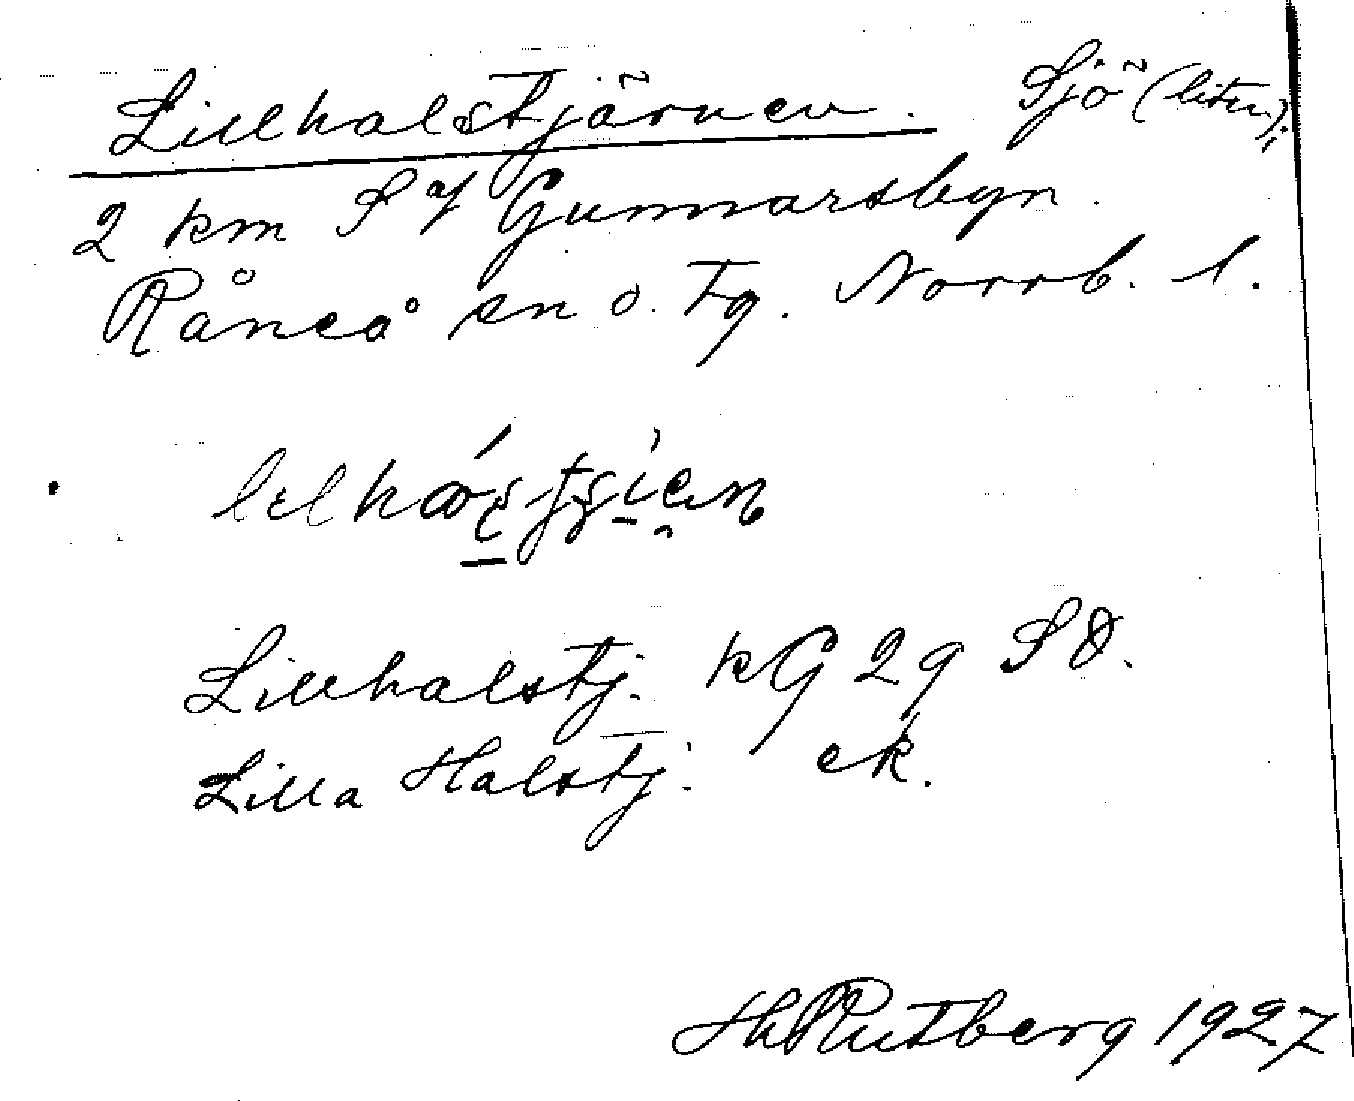 Lillhalstjärnen. Sjö (liten).
2 km S of Gunnarsbyn.
Råneå sn o. tg. Norrb. l.
Lillhalstj. kG 29 SO.
Lilla Halstj. ek.
HRutberg 1927